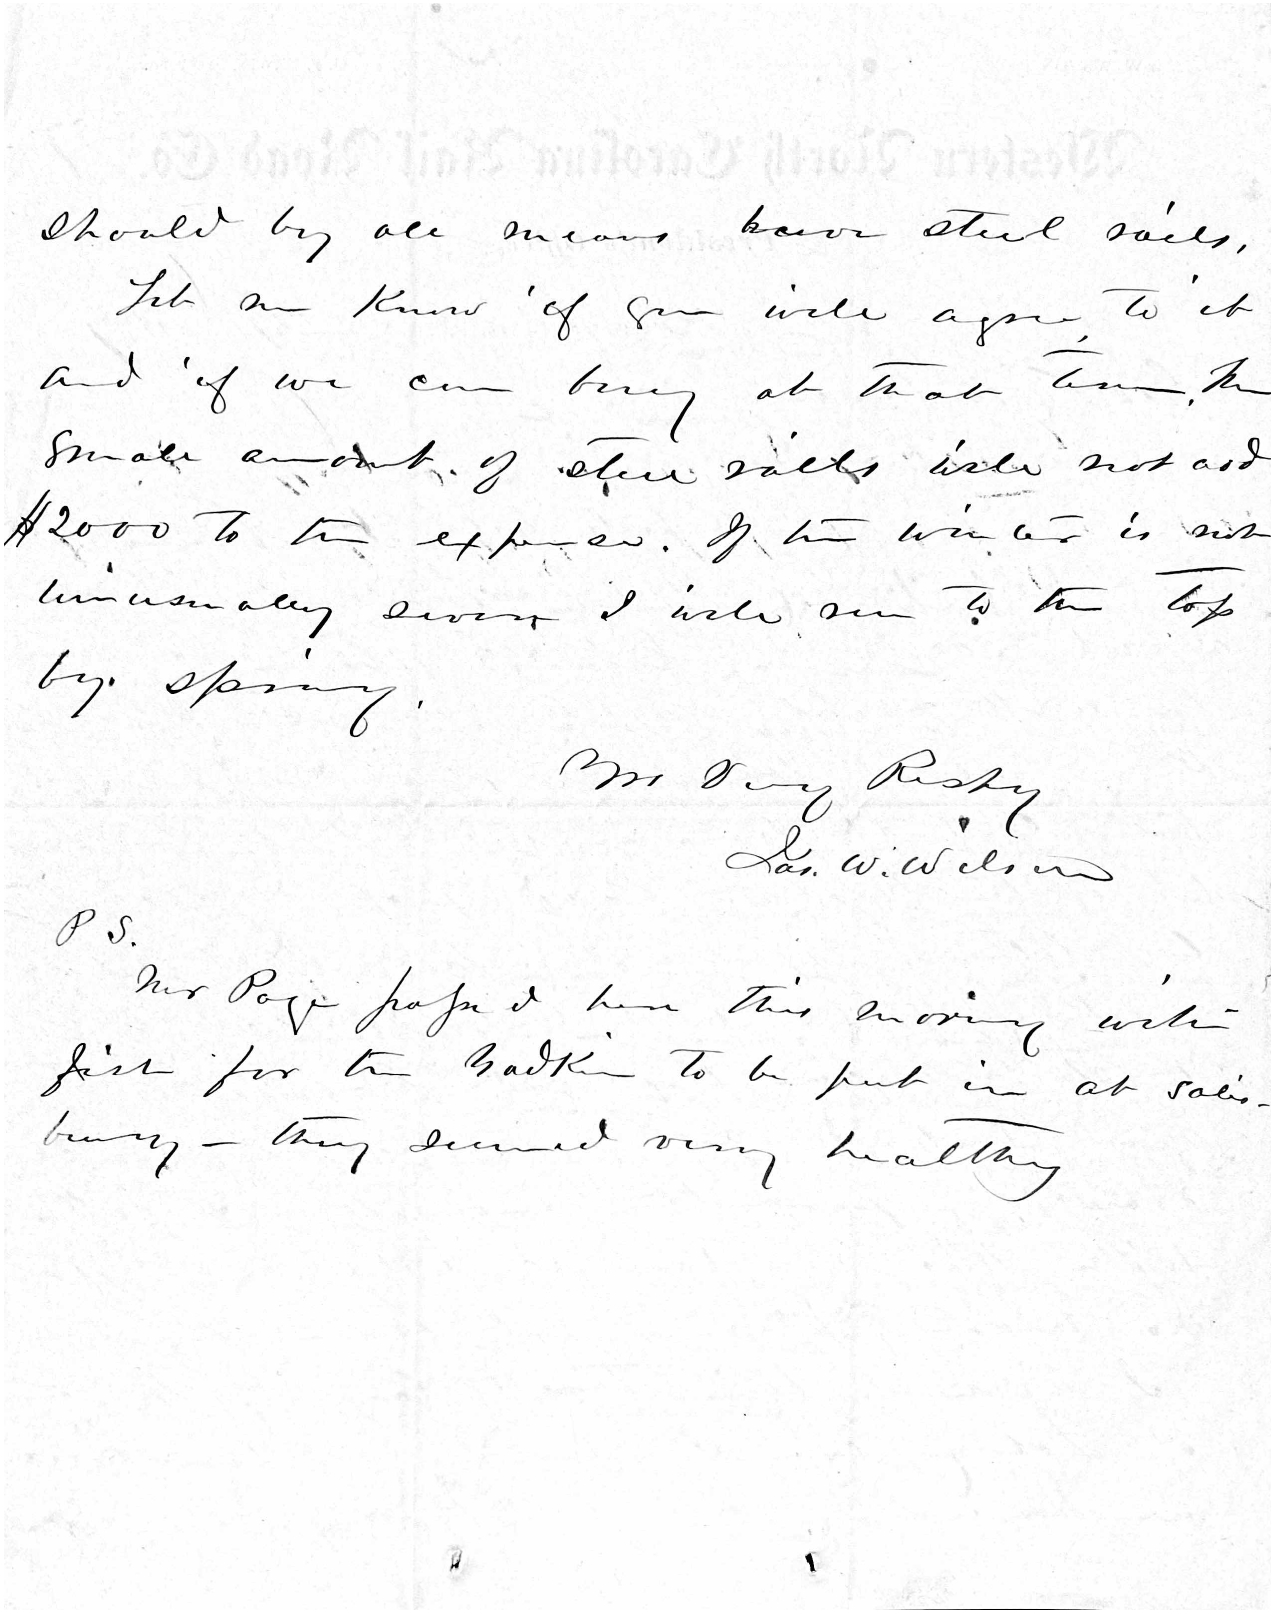 should by all means have steel rails,
Let me Know if you will agree to it
and if we can buy at that time. The
small amount of steel rails will not add
$2000 to the expense. If the winter is not
unusually severe I will run to the top
by spring.
Yrs Very Resty
Jas. W. Wilson
P S.
Mr Page passed here this morning with
fish for the Yadkin to be put in at Salis-
bury — they seemed very healthy